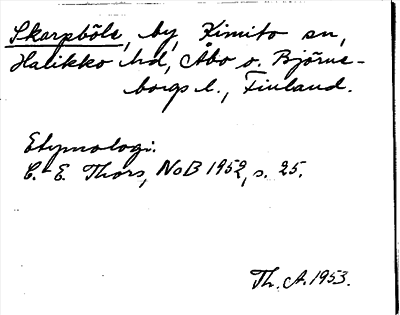 Skarpböle, by, Kimito sn,
Halikko hd, Åbo o. Björne-
borgs l., Finland.
Etymologi:
C. E. Thors, NoB 1952, s. 25.
Th. A. 1953.